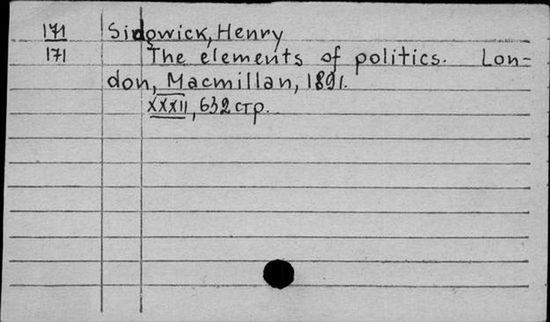 171 Sidgwick, Henry
171 The elements of politics. Lon-
don, Macmillan, 1891.
XXXII, 632 стр.